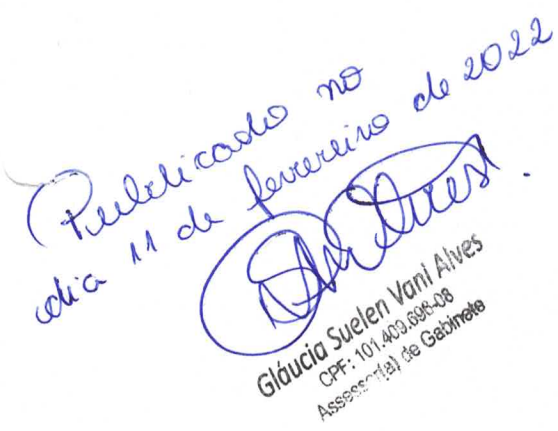 Publicado no
dia 11 de fevereiro de 2022
Gláucia Suelen Vani Alves
CPF: 101.409.696-08
Assessor(a) de Gabinete